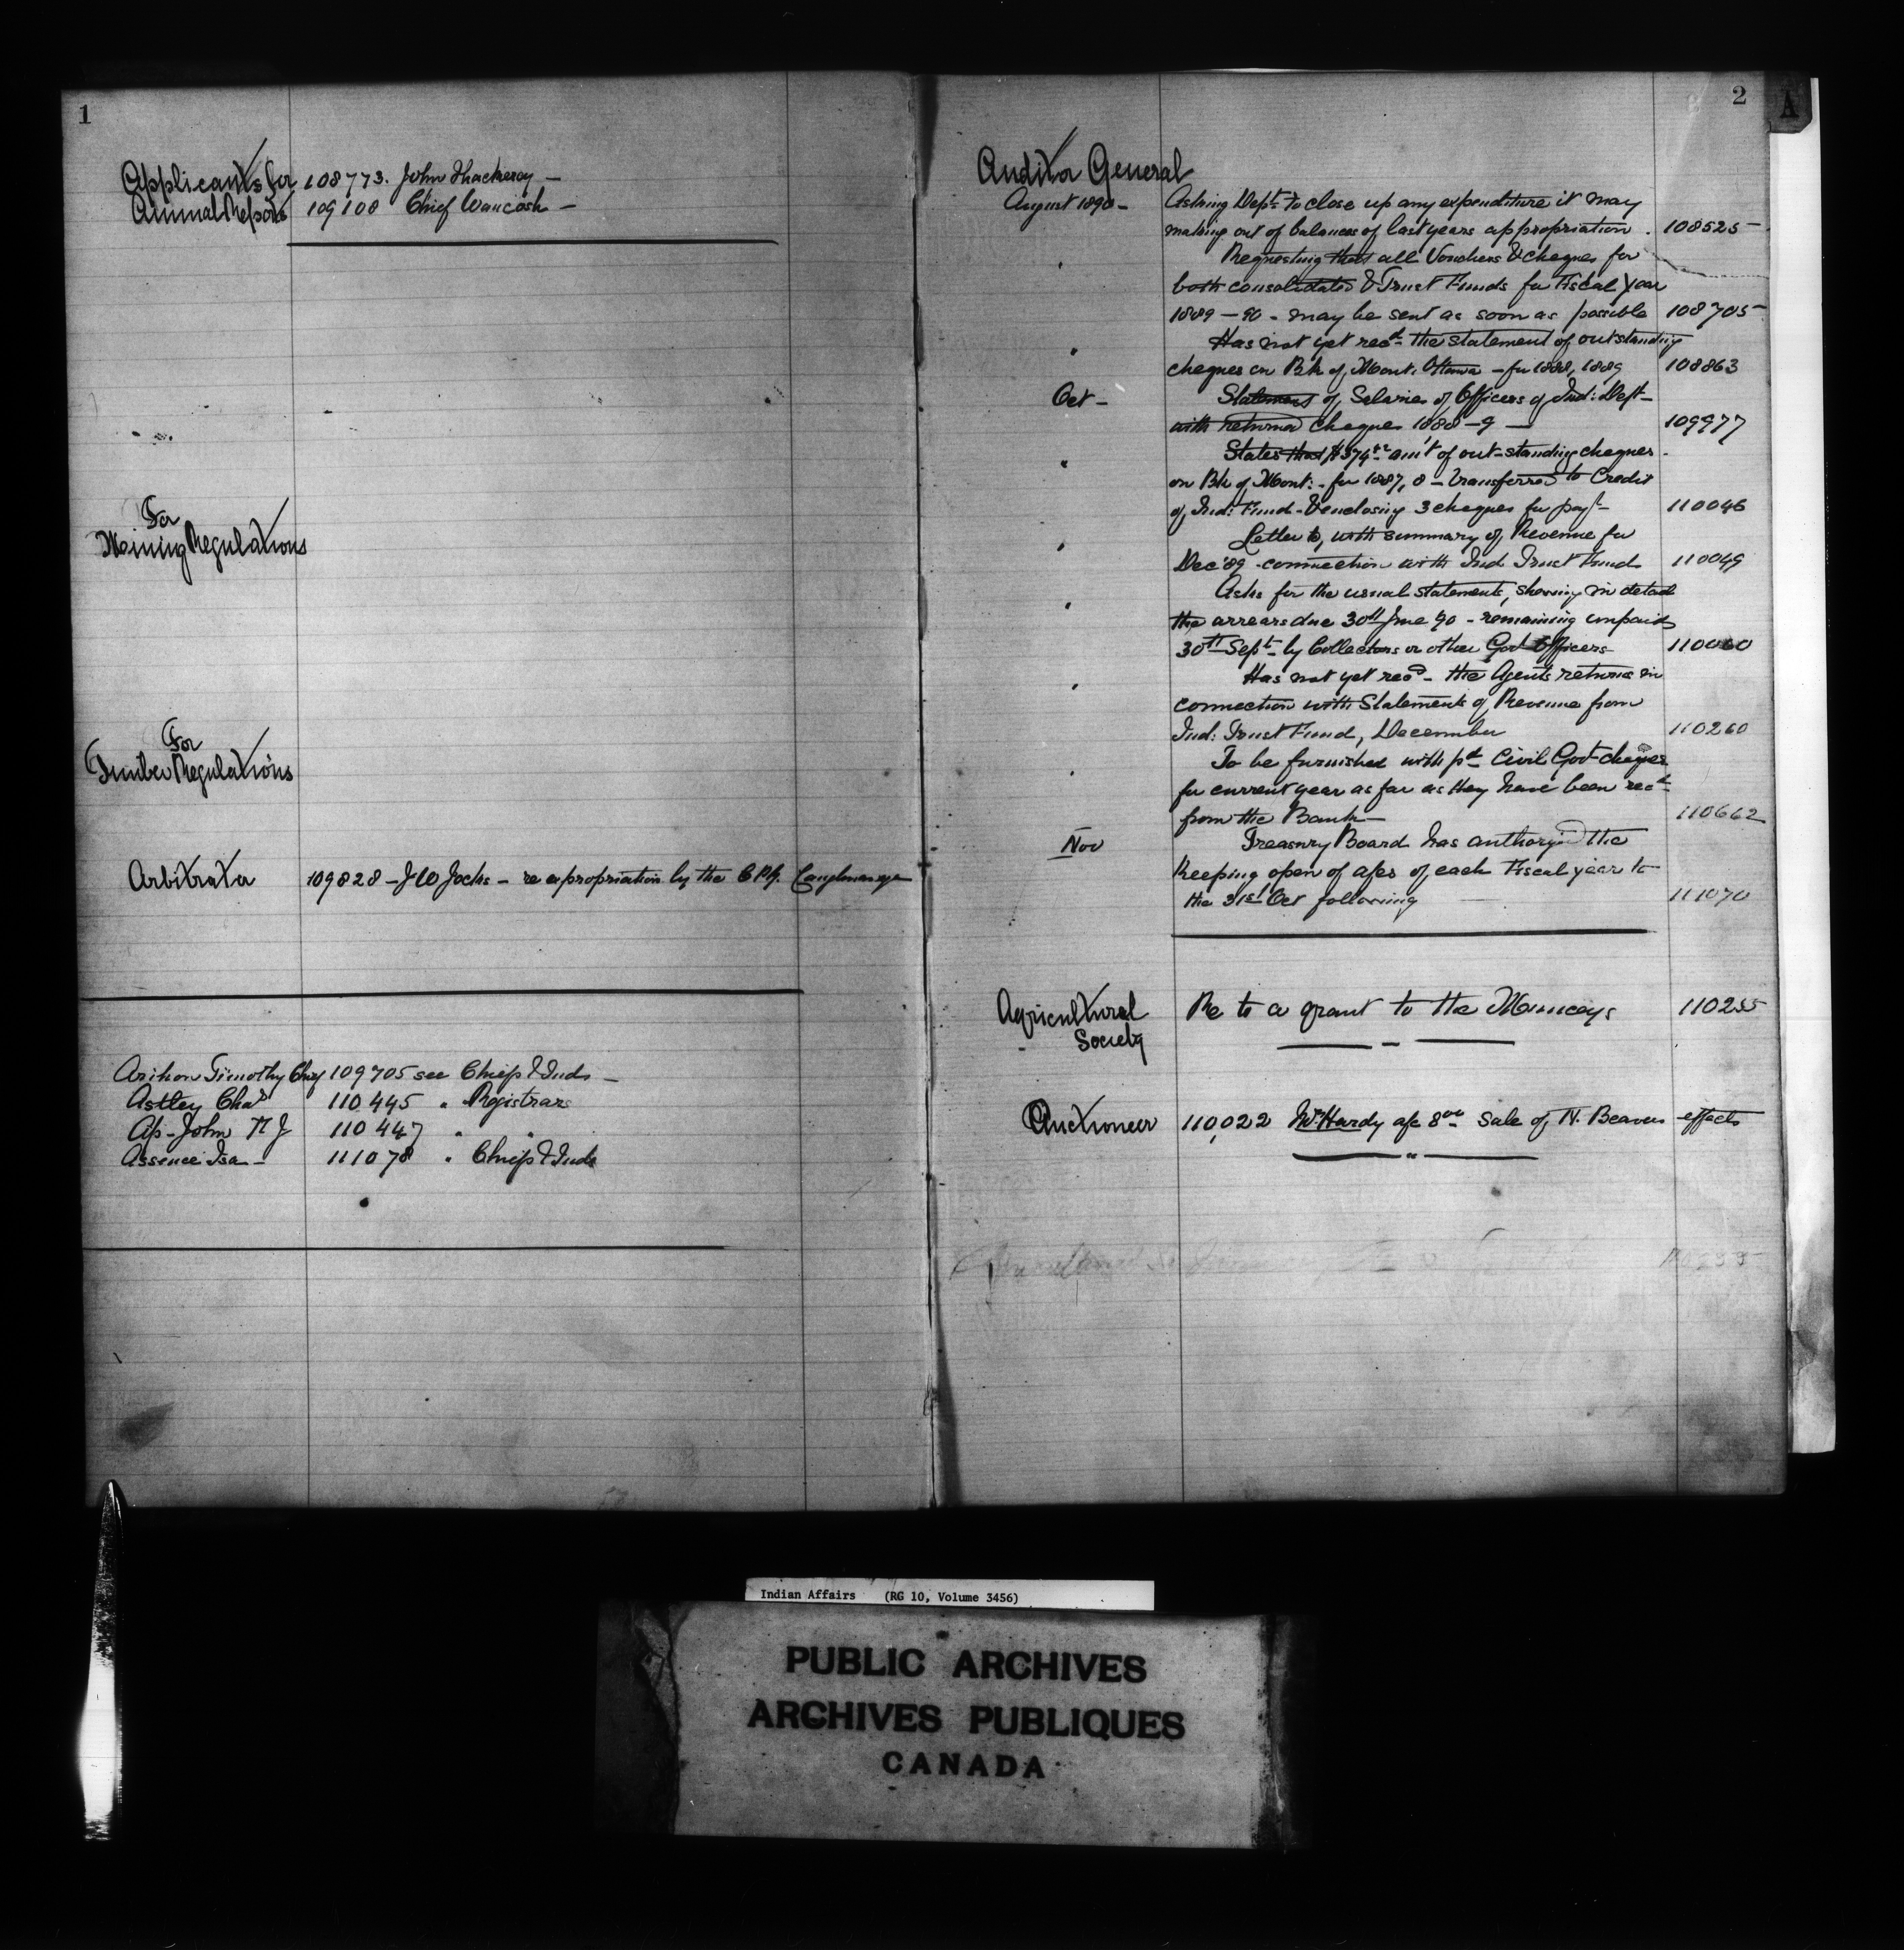 1
Applicants for 108773. John Thackeray —
Annual Reports 109108 Chief Wawcosh —
For
Mining Regulations
For
Timber Regulations
Arbitrator 109828 — J W Jocks — re expropriation by the C.P.R. Caughnawaga
Arihon Timothy Chief 109705 see Chiefs & Inds —
Astley Chas 110445 " Registrars
Ap-John T J 110447 " "
Assence Isa — 111078 " Chiefs & Inds
2
A
Auditor General
August 1890 — Asking Dept. to close up any expenditure it may
making out of balances of last years appropriation. 108525 —
" Requesting that all Vouchers & cheques for
both consolidated & Trust Funds for Fiscal Year
1889 — 90 - may be sent as soon as possible 108705 —
" Has not yet recd. the statement of outstanding
cheques on Bk of Mont. Ottawa — for 1888, 1889 108863
Oct — Statement of Salaries of Officers of Ind: Dept —
with returned cheques 1888 — 9 — 109977
" States that amt of out-standing cheques
on Bk of Mont: - for 1887, 8 — transferred to Credit
of Ind: Fund - & enclosing 3 cheques for payt — 110046
" Letter to, with summary of Revenue for
Dec '89 - connection with Ind Trust Fund 110049
" Asks for the usual statements, showing in detail
the arrears due 30th June 90 - remaining unpaid
30th Sept — by Collectors or other Govt Officers 110060
" Has not yet recd — the Agents returns in
connection with Statements of Revenue from
Ind: Trust Fund, December 110260
" To be furnished with pd Civil Govt cheques
for current year as far as they have been recd
from the Bank — 110662
Nov Treasury Board has authorized the
Keeping open of a/cs of each Fiscal year to
the 31st Oct following 111070
Agricultural Re to a grant to the Munceys 110255
Society
Auctioneer 110,022 Wm Hardy a/c 8.00 Sale of N. Beavers effects
Indian Affairs (RG 10, Volume 3456)
PUBLIC ARCHIVES
ARCHIVES PUBLIQUES
CANADA